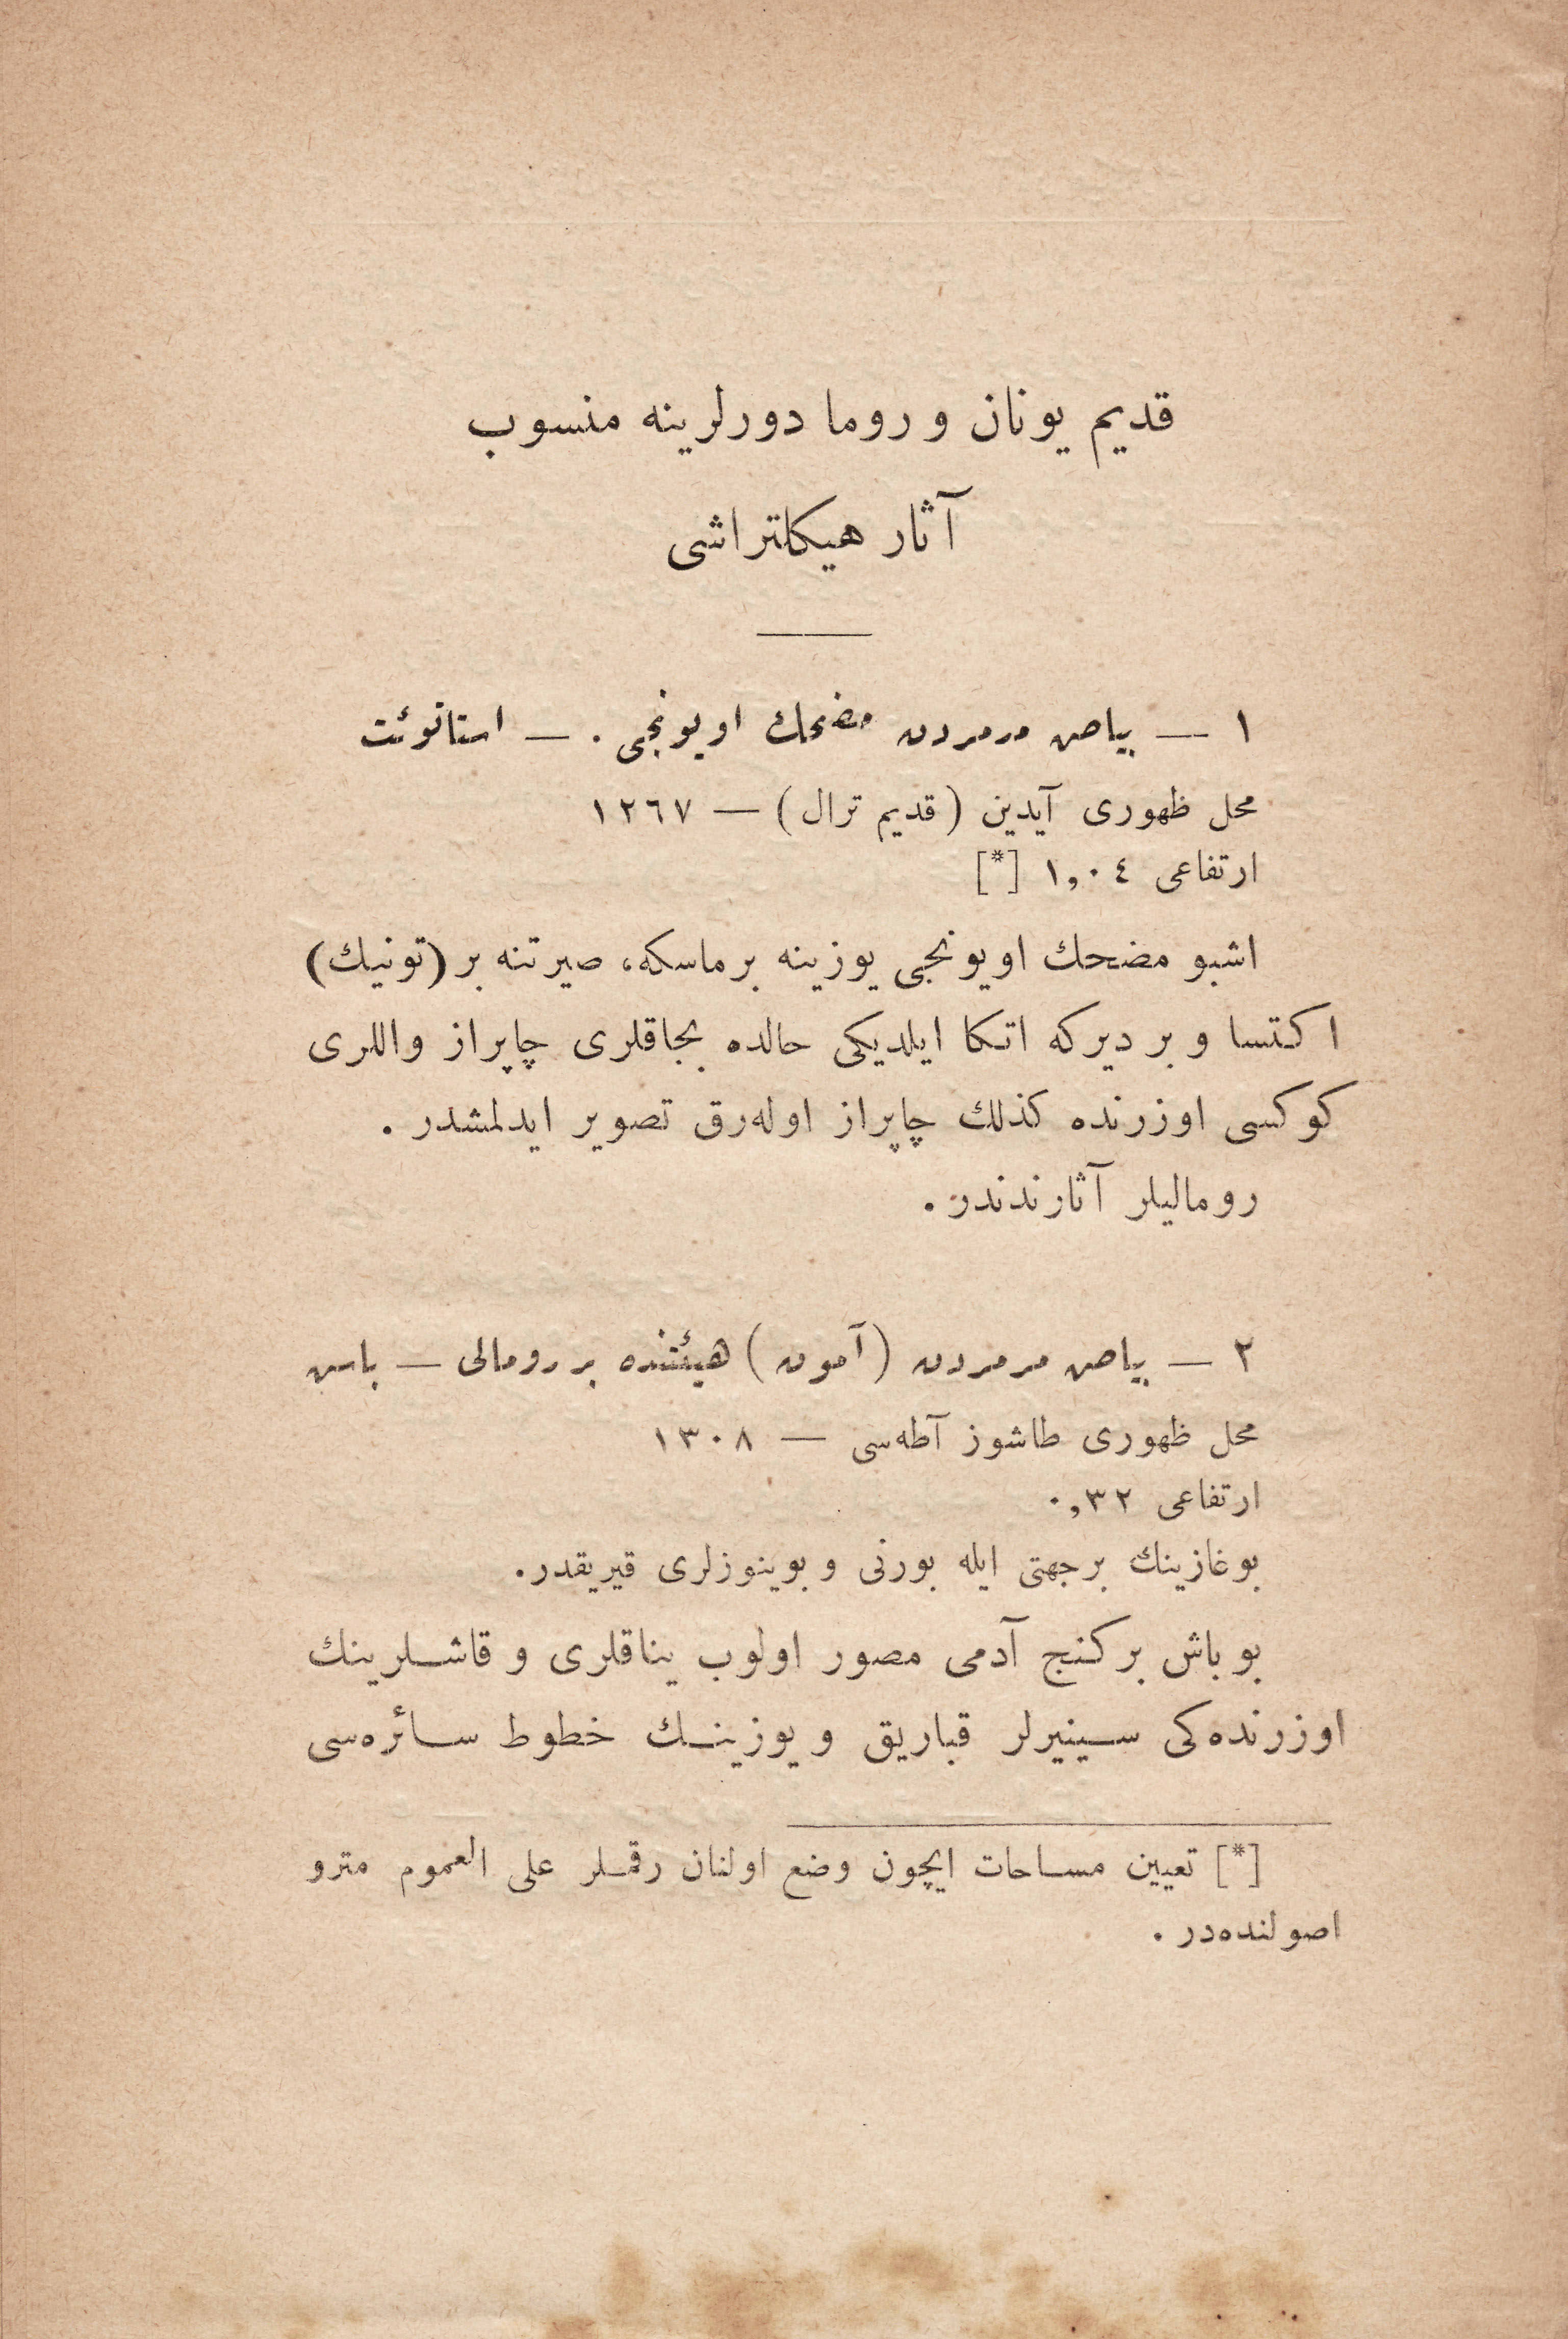 قديم يونان و روما دورلرينه منسوب
آثار هيكلتراشی
١ — بياض مرمردن مضحك اويونجی . — استاتوئت
محل ظهوری آيدين (قديم ترال) — ١٢٦٧
ارتفاعی ١,٠٤ [*]
اشبو مضحك اويونجی يوزينه برماسكه، صيرتنه بر (تونيك)
اكتسا و بر ديركه اتكا ايلديكی حالده بجاقلری چاپراز واللری
كوكسی اوزرنده كذلك چاپراز اوله‌رق تصوير ايدلمشدر .
روماليلر آثارندندر .
٢ — بياض مرمردن (آمون) هيئتنده بر رومالی — باش
محل ظهوری طاشوز آطه‌سی — ١٣٠٨
ارتفاعی ٠,٣٢
بوغازينك برجهتی ايله بورنی و بوينوزلری قيريقدر.
بو باش بركنج آدمی مصور اولوب يناقلری و قاشلرينك
اوزرنده‌كی سينيرلر قباريق و يوزينك خطوط سائره‌سی
[*] تعيين مساحات ايچون وضع اولنان رقملر علی العموم مترو
اصولنده‌در .